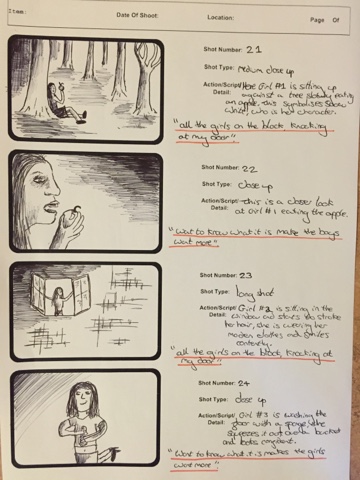 Item:
Date Of Shoot:
Location:
Page Of
Shot Number: 21
Shot Type: medium close up
Action/Script/ Here Girl #1 is sitting up
Detail: against a tree slowly eating
an apple. this symbolises Snow
White, who is her character.
"all the girls on the block knocking
at my door"
Shot Number: 22
Shot Type: close up
Action/Script/ this is a closer look
Detail: at Girl #1 eating the apple.
"Want to know what it is make the boys
want more"
Shot Number: 23
Shot Type: long shot
Action/Script/ Girl is sitting in the
Detail: window and starts to stroke
her hair, she is wearing her
modern clothes and smiles
contently.
"all the girls on the block knocking at
my door"
Shot Number: 24
Shot Type: close up
Action/Script/ Girl #3 is washing the
Detail: floor with a sponge, she
squeezes it out over a bucket
and looks confident.
"Want to know what it is makes the girls
want more"